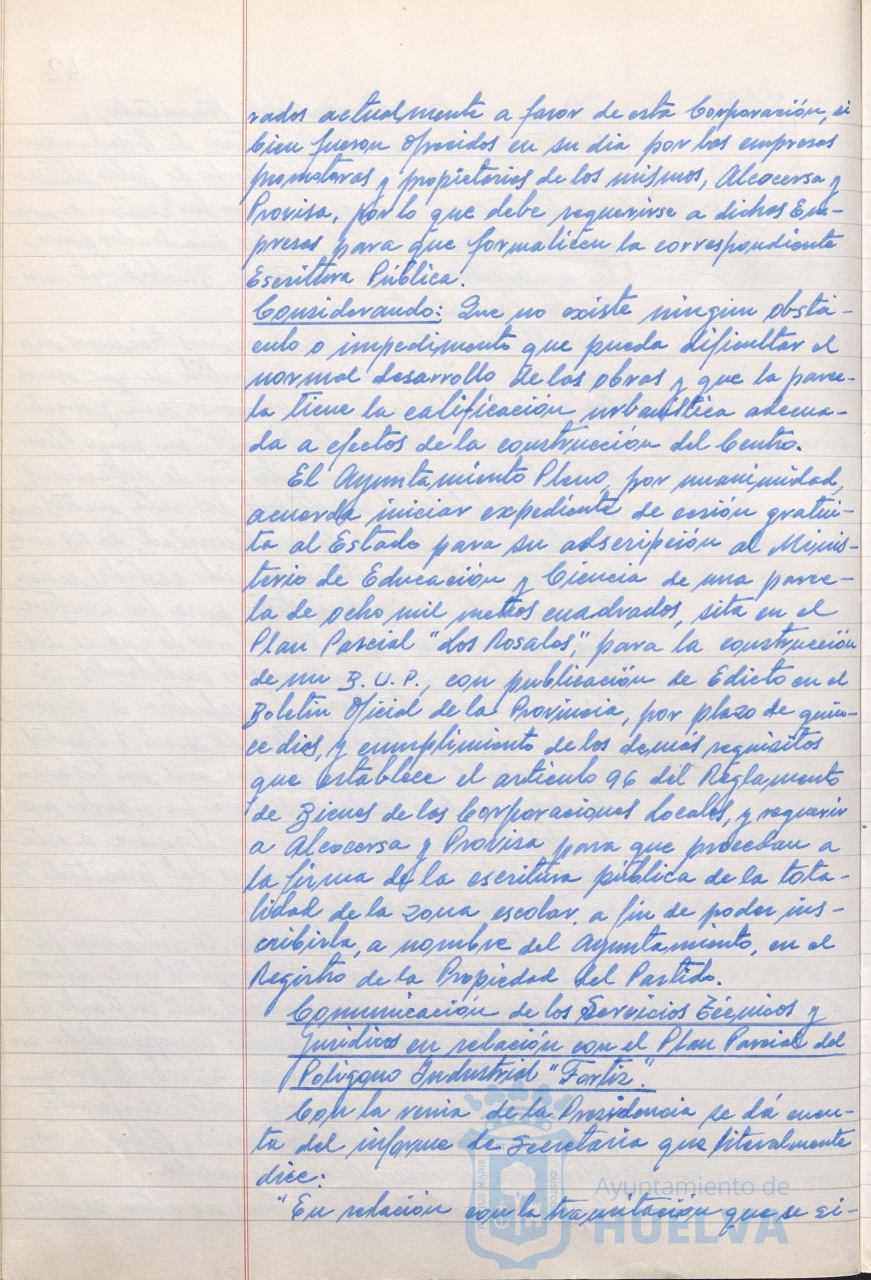 rados actualmente a favor de esta Corporación, si
bien fueron ofrecidos en su dia por las empresas
promotoras y propietarias de los mismos, Alcocersa y
Provisa, por lo que debe requerirse a dichas Em-
presas para que formalicen la correspondiente
Escritura Pública.
Considerando: Que no existe ningun obstá-
culo o impedimento que pueda dificultar el
normal desarrollo de las obras y que la parce-
la tiene la calificación urbanística adecua-
da a efectos de la construcción del Centro.
El Ayuntamiento Pleno, por unanimidad,
acuerda iniciar expediente de cesión gratui-
ta al Estado para su adscripción al Minis-
terio de Educación y Ciencia de una parce-
la de ocho mil metros cuadrados, sita en el
Plan Parcial "Los Rosales", para la construcción
de un B.U.P., con publicación de Edicto en el
Boletín Oficial de la Provincia, por plazo de quin-
ce dias, y cumplimiento de los demás requisitos
que establece el articulo 96 del Reglamento
de Bienes de las Corporaciones Locales, y requerir
a Alcocersa y Provisa para que procedan a
la firma de la escritura pública de la tota-
lidad de la zona escolar, a fin de poder ins-
cribirla, a nombre del Ayuntamiento, en el
Registro de la Propiedad del Partido.
Comunicación de los Servicios Técnicos y
Jurídicos en relación con el Plan Parcial del
Polígono Industrial "Fortiz".
Con la venia de la Presidencia se dá cuen-
ta del informe de Secretaria que literalmente
dice:
"En relación con la tramitación que se si-
Ayuntamiento de
HUELVA